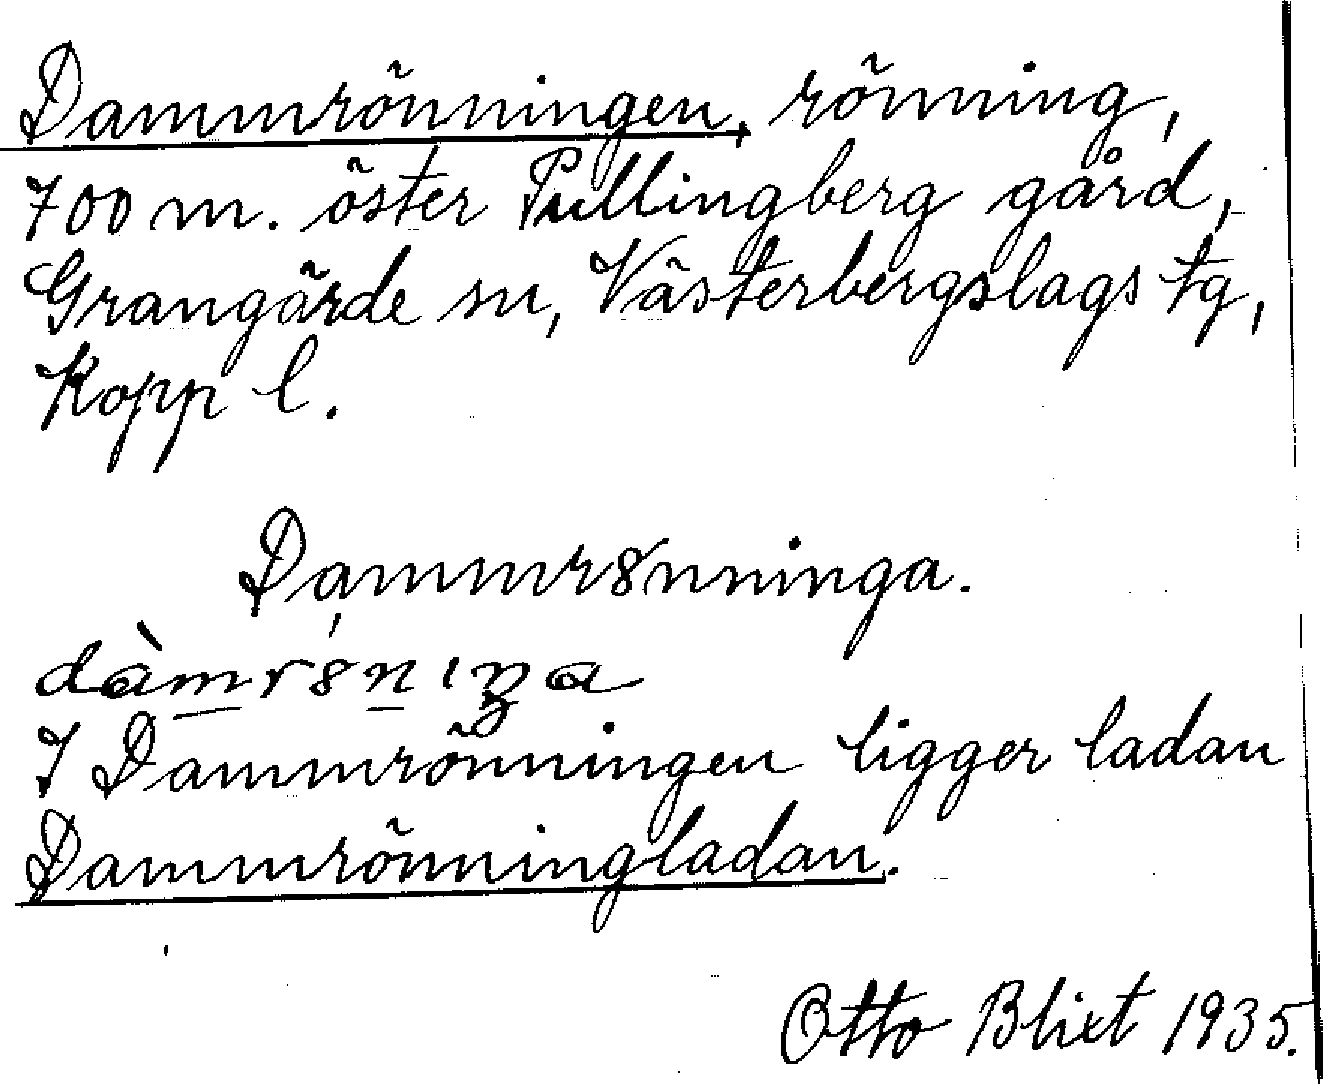 Dammrönningen, rönning,
700 m. öster Pullingberg gård,
Grangärde sn, Västerbergslags tg,
Kopp l.
Dammr8nninga.
dàmr8nıŋa
I Dammrönningen ligger ladan
Dammrönningladan.
Otto Blixt 1935.